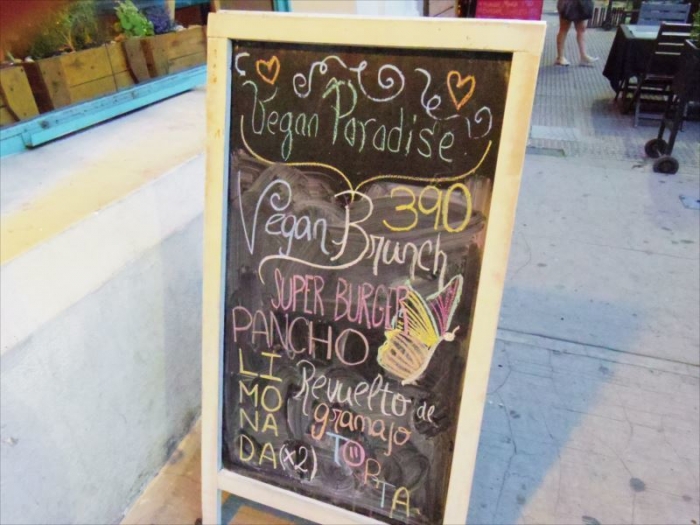 Vegan Paradise
390
Vegan Brunch
SUPER BURGER
PANCHO
LIMONADA (x2)
Revuelto de
gramajo
TORTA